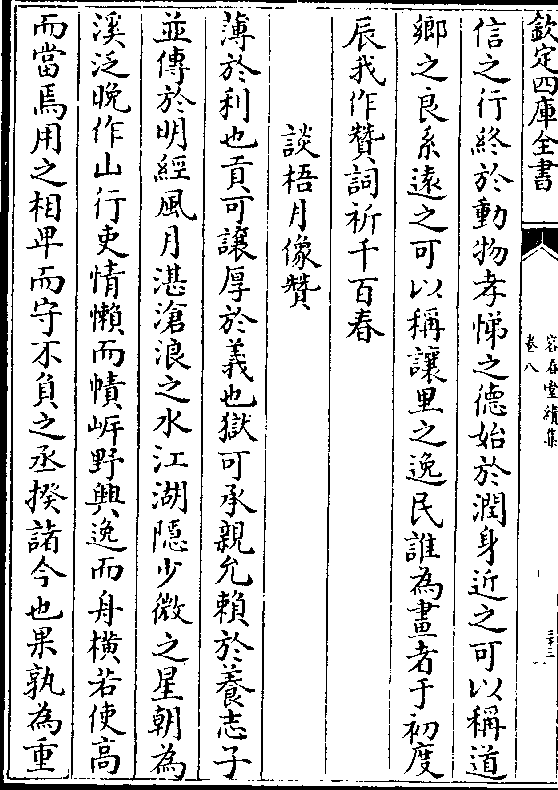 欽定四庫全書
容春堂續集
卷八
三十三
信之行終於動物孝悌之德始於潤身近之可以稱道
鄉之良系遠之可以稱讓里之逸民誰為畫者于初度
辰我作贊詞祈千百春
談梧月像贊
薄於利也貢可讓厚於義也獄可承親允賴於養志子
並傳於明經風月湛滄浪之水江湖隱少微之星朝為
溪泛晩作山行吏情懶而幘岸野興逸而舟橫若使高
而當焉用之相卑而守不負之丞揆諸今也果孰為重